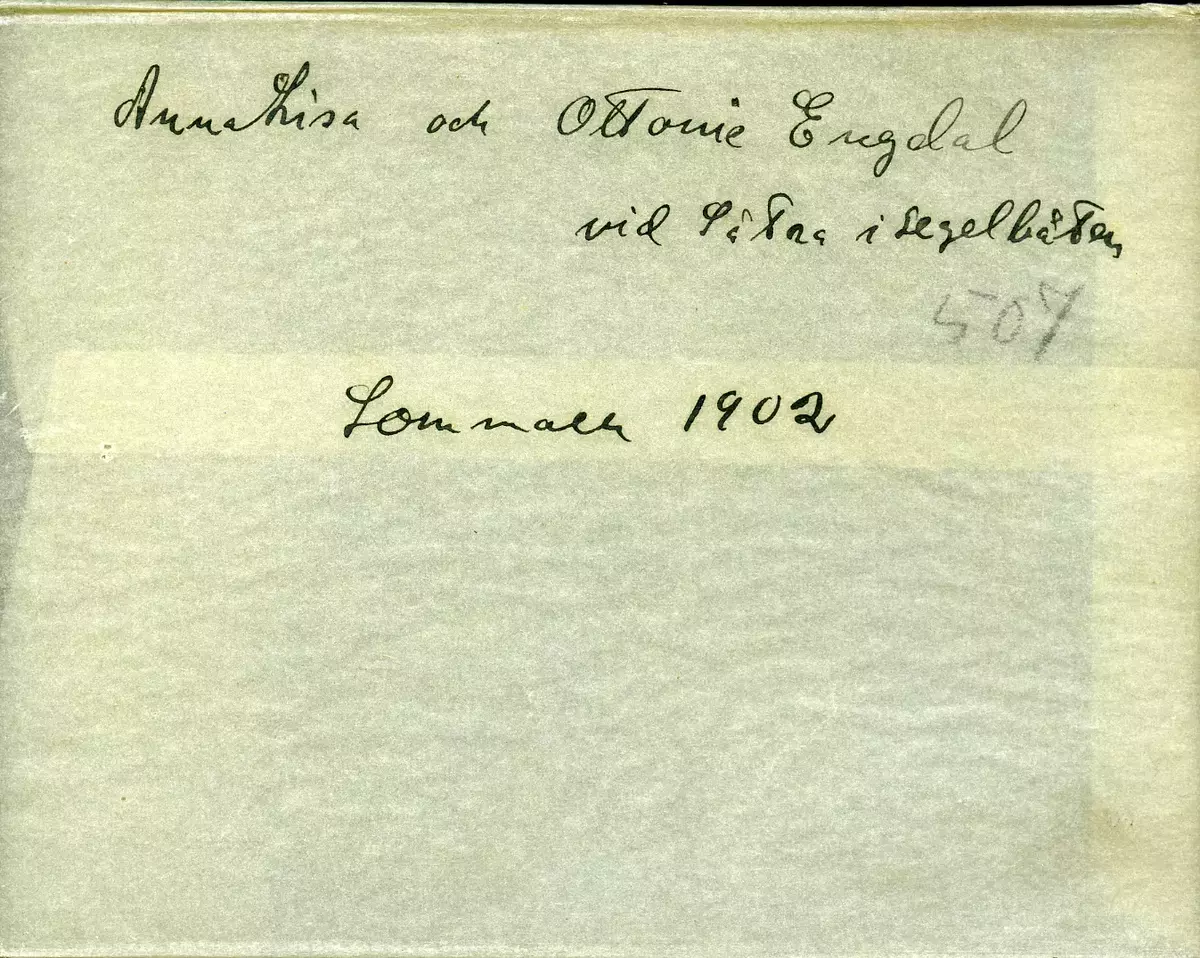 Anna Lisa och Ottonie Engdal
vid Sätra i segelbåten
507
Sommaren 1902